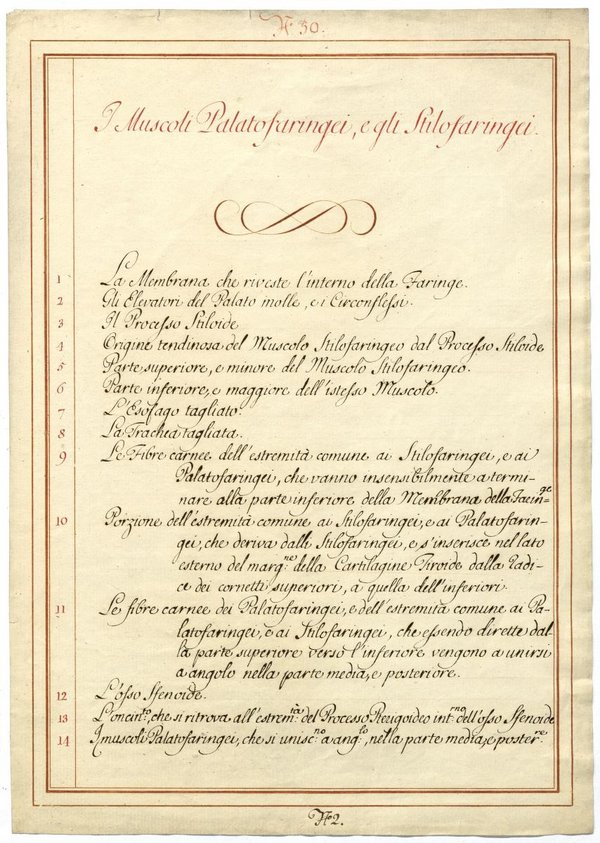 N.º 30.
I Muscoli Palatofaringei, e gli Stilofaringei.
1 La Membrana che riveste l'interno della Faringe.
2 Gli Elevatori del Palato molle, e i Circonflessi.
3 Il Processo Stiloide
4 Origine tendinosa del Muscolo Stilofaringeo dal Processo Stiloide
5 Parte superiore, e minore del Muscolo Stilofaringeo.
6 Parte inferiore, e maggiore dell'istesso Muscolo.
7 L'Esofago tagliato.
8 La Trachea tagliata.
9 Le Fibre carnee dell'estremità comune ai Stilofaringei, e ai
Palatofaringei, che vanno insensibilmente a termi-
nare alla parte inferiore della Membrana della Farin=ge
10 Porzione dell'estremità comune ai Stilofaringei, e ai Palatofarin-
gei, che deriva dalli Stilofaringei, e s'inserisce nel lato
esterno del marg.ne della Cartilagine Tiroide dalla Radi-
ce dei cornetti superiori, a quella dell'inferiori.
11 Le fibre carnee dei Palatofaringei, e dell'estremità comune ai Pa-
latofaringei, e ai Stilofaringei, che essendo dirette dal-
la parte superiore verso l'inferiore vengono a unirsi
a angolo nella parte media, e posteriore.
12 L'osso Sfenoide.
13 L'oncin.to, che si ritrova all'estrem.tà del Processo Pterigoideo int.rno dell'osso Sfenoide
14 I muscoli Palatofaringei, che si unisc.no a ang.lo, nella parte media, e poster.re
N.º 2.